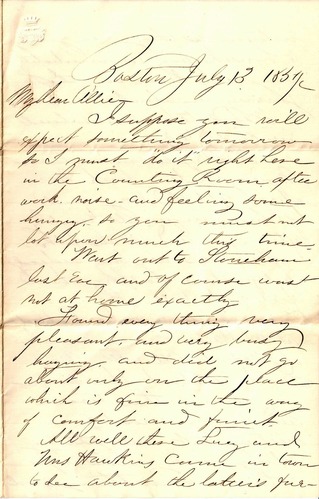 Boston July 13 1857
My dear Allie,
I suppose you will
expect something tomorrow
so I must "do it" right here
in the Counting Room after
work. and feeling some
hungry, so you must not
lot upon much this time.
Went out to Stoneham
last Eve and of course was
not at home exactly
Found every thing very
pleasant, and very busy
haying, and did not go
about only on the place
which is fine in the way
of comfort and fruit.
All well there Lucy and
Mrs Hawkins Came in town
to see about the latter's fur-